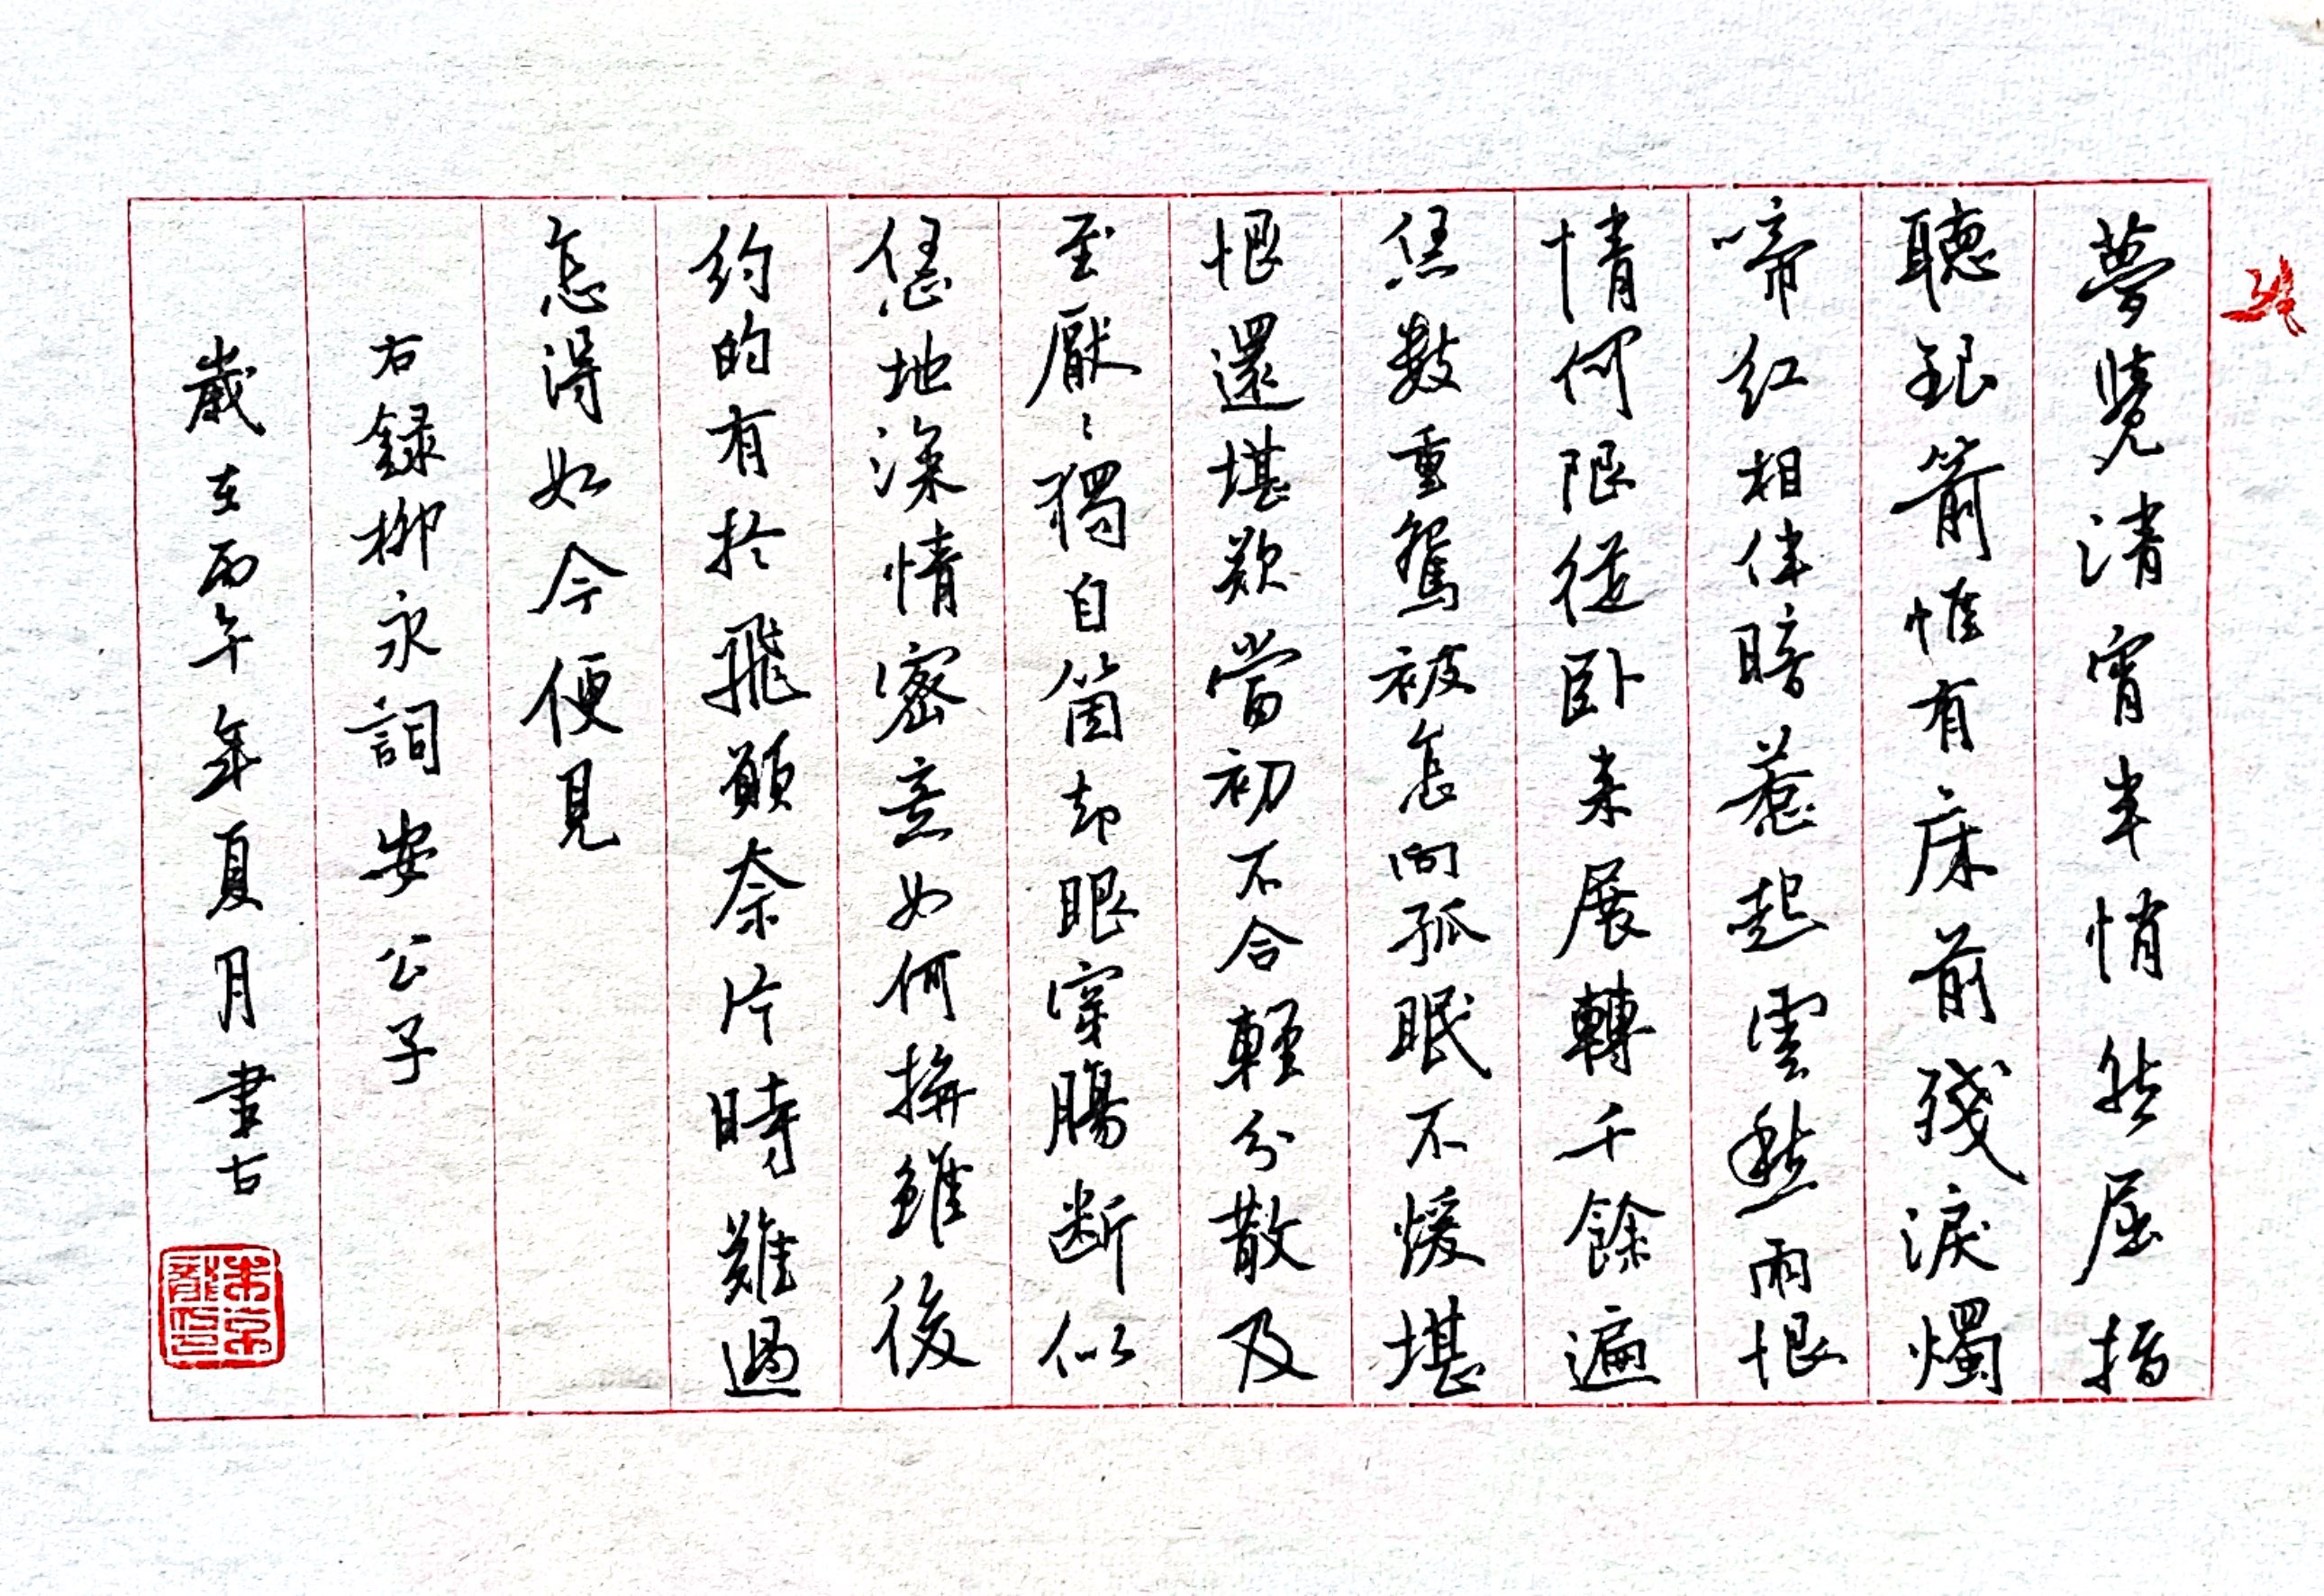 夢覺清宵半悄然屈指
聽銀箭惟有床前殘淚燭
啼紅相伴暗惹起雲愁雨恨
情何限從卧来展轉千餘遍
恁數重鴛被怎向孤眠不煖堪
恨還堪歎當初不合輕分散及
至厭〻獨自箇却眼穿腸断似
恁地深情密意如何拚雖後
約的有扵飛願奈片時難過
怎得如今便見
右録柳永詞安公子
歲在丙午年夏月書古